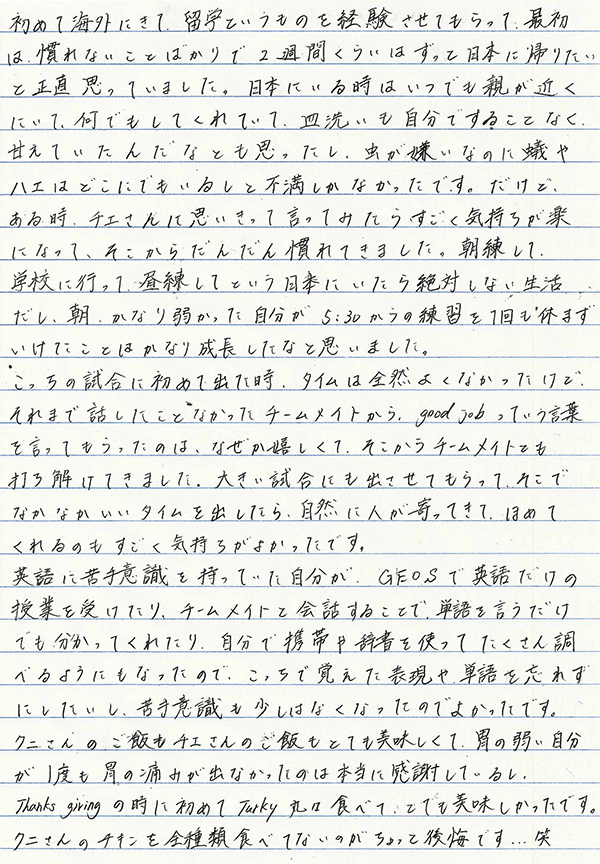 初めて海外にきて、留学というものを経験させてもらって、最初
は、慣れないことばかりで2週間くらいはずっと日本に帰りたい
と正直思っていました。日本にいる時はいつでも親が近く
にいて、何でもしてくれていて、皿洗いも自分ですることなく、
甘えていたんだなとも思ったし、虫が嫌いなのに蟻や
ハエはどこにでもいるしと不満しかなかったです。だけど、
ある時、チエさんに思いきって言ってみたらすごく気持ちが楽
になって、そこからだんだん慣れてきました。朝練して、
学校に行って、昼練してという日本にいたら絶対しない生活
だし、朝、かなり弱かった自分が5:30からの練習を1回も休まず
いけたことはかなり成長したなと思いました。
こっちの試合に初めて出た時、タイムは全然よくなかったけど、
それまで話したことなかったチームメイトから、good jobっていう言葉
を言ってもらったのは、なぜか嬉しくて、そこからチームメイトとも
打ち解けてきました。大きい試合にも出させてもらって、そこで
なかなかいいタイムを出したら、自然に人が寄ってきて、ほめて
くれるのもすごく気持ちがよかったです。
英語に苦手意識を持っていた自分が、GEOSで英語だけの
授業を受けたり、チームメイトと会話することで、単語を言うだけ
でも分かってくれたり、自分で携帯や辞書を使ってたくさん調
べるようにもなったので、こっちで覚えた表現や単語を忘れず
にしたいし、苦手意識も少しはなくなったのでよかったです。
クニさんのご飯もチエさんのご飯もとても美味しくて、胃の弱い自分
が1度も胃の痛みが出なかったのは本当に感謝しているし、
Thanks givingの時に初めてTurky丸口食べて、とても美味しかったです。
クニさんのチキンを全種類食べてないのがちょっと後悔です…笑